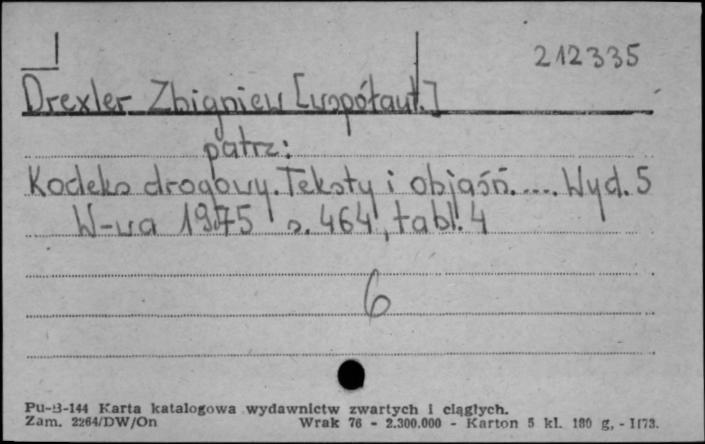 212335
Drexler Zbigniew [współaut.]
patrz:
Kodeks drogowy. Teksty i objaśń. .... Wyd. 5
W-wa 1975 s. 464, tabl. 4
6
Pu-B-144 Karta katalogowa wydawnictw zwartych i ciągłych.
Zam. 2264/DW/On Wrak 76 - 2.300.000 - Karton 5 kl. 180 g, - I173.